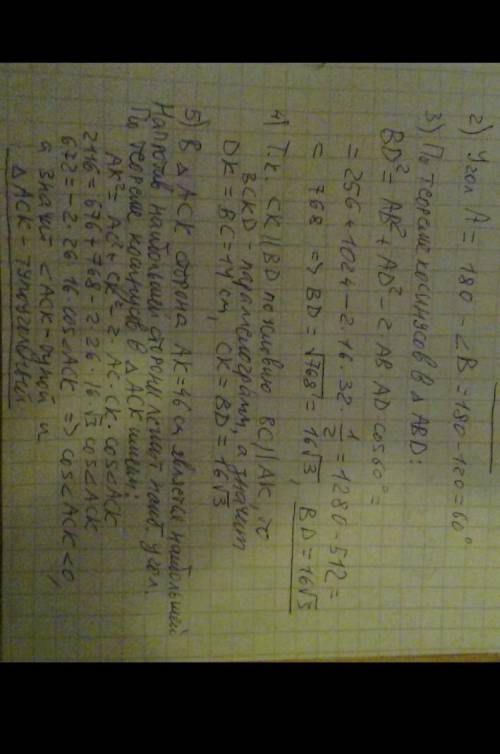 2) Угол A = 180 - ∠B = 180 - 120 = 60°
3) По теореме косинусов в Δ ABD:
BD² = AB² + AD² - 2 AB AD cos 60° =
= 256 + 1024 - 2·16·32·1/2 = 1280 - 512 =
= 768 => BD = √768 = 16√3, BD = 16√3
4) Т.к. CK || BD по условию BC || AK, то
BCKD - параллелограмм, а значит
DK = BC = 14 см, CK = BD = 16√3
5) В Δ ACK сторона AK = 46 см является наибольшей
Напротив наибольшей стороны лежит наиб угол.
По теореме косинусов в Δ ACK имеем:
AK² = AC² + CK² - 2 AC·CK·cos<ACK
2116 = 676 + 768 - 2·26·16√3 cos<ACK
672 = -2·26·16·cos<ACK => cos<ACK <0,
а значит <ACK - тупой и
Δ ACK - тупоугольный